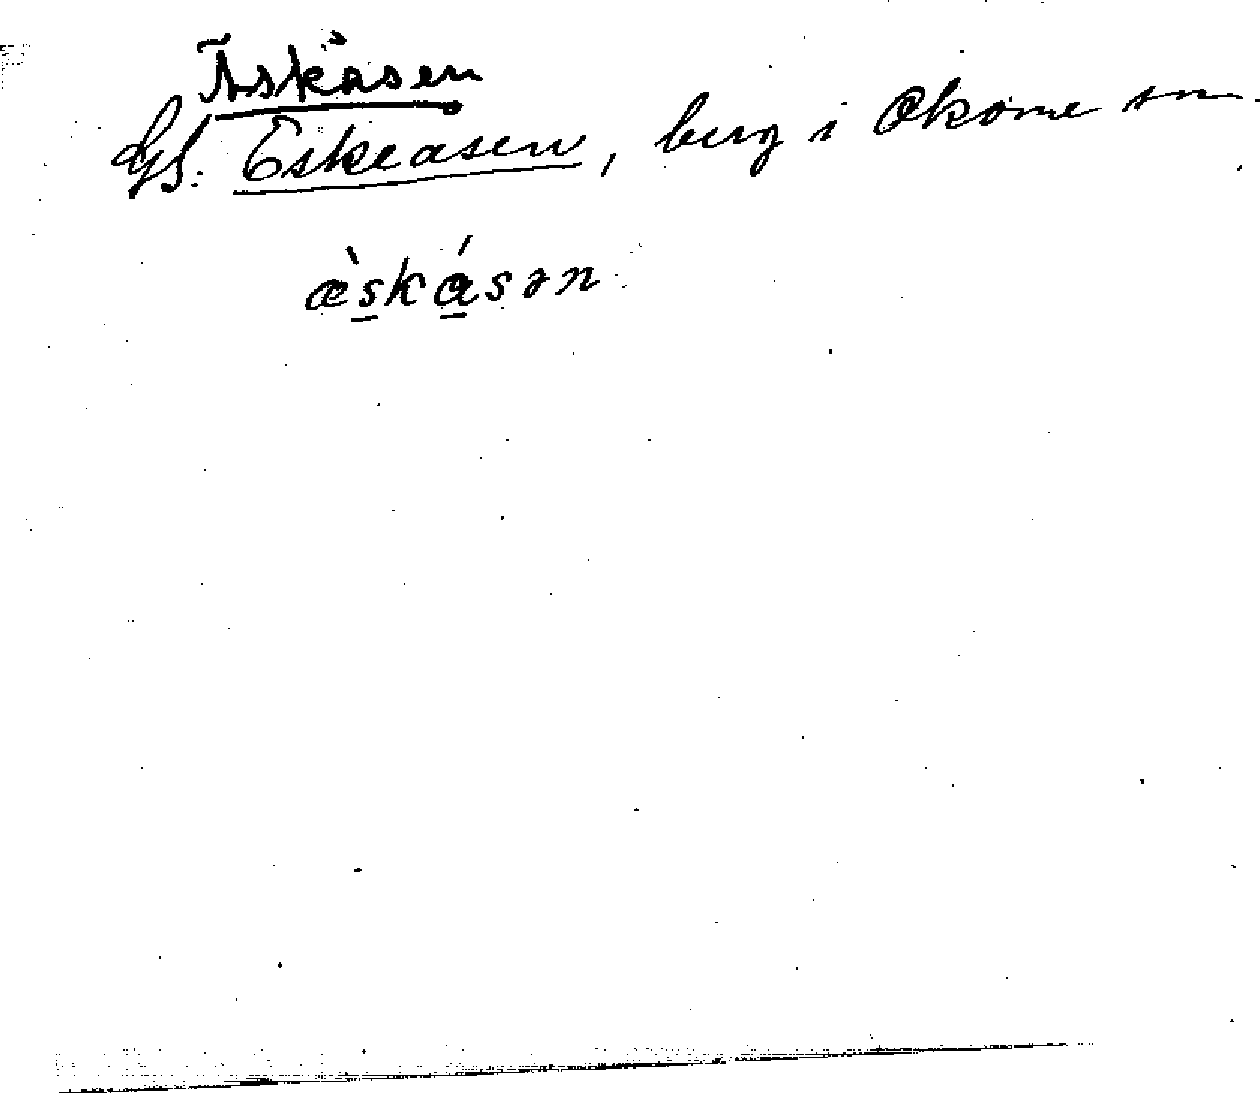 Äskåsen
Gs. Eskeåsen, berg i Okome sn.
æ̀skåsən